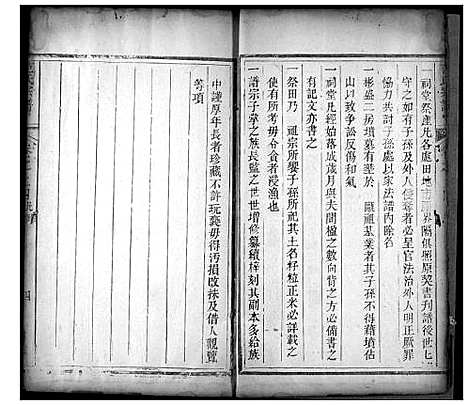 一祠堂祭產凡各處田地界隅俱照原契書刋譜後世
守之如有子孫及外人侵奪者必呈官法治外人明正厥罪
恊力共討子孫處以家法譜內除名
一彬盛二房墳墓有塟於 歐祖墓業者其子孫不得藉墳估
山以致爭訟反傷和氣
一祠堂凡經始落成歲月與夫間楹之數向背之方必備書之
有記文亦書之
一祭田乃 祖宗所嬰子孫所祀其土名籽粒正米必詳載之
使有所考毋令食者浸漁也
一譜宗子掌之族長監之世世增修纂續梓刻其嗣本多給族
中謹厚年長者珍藏不許玩褻毋得汚損改抹及借人觀覽
等項